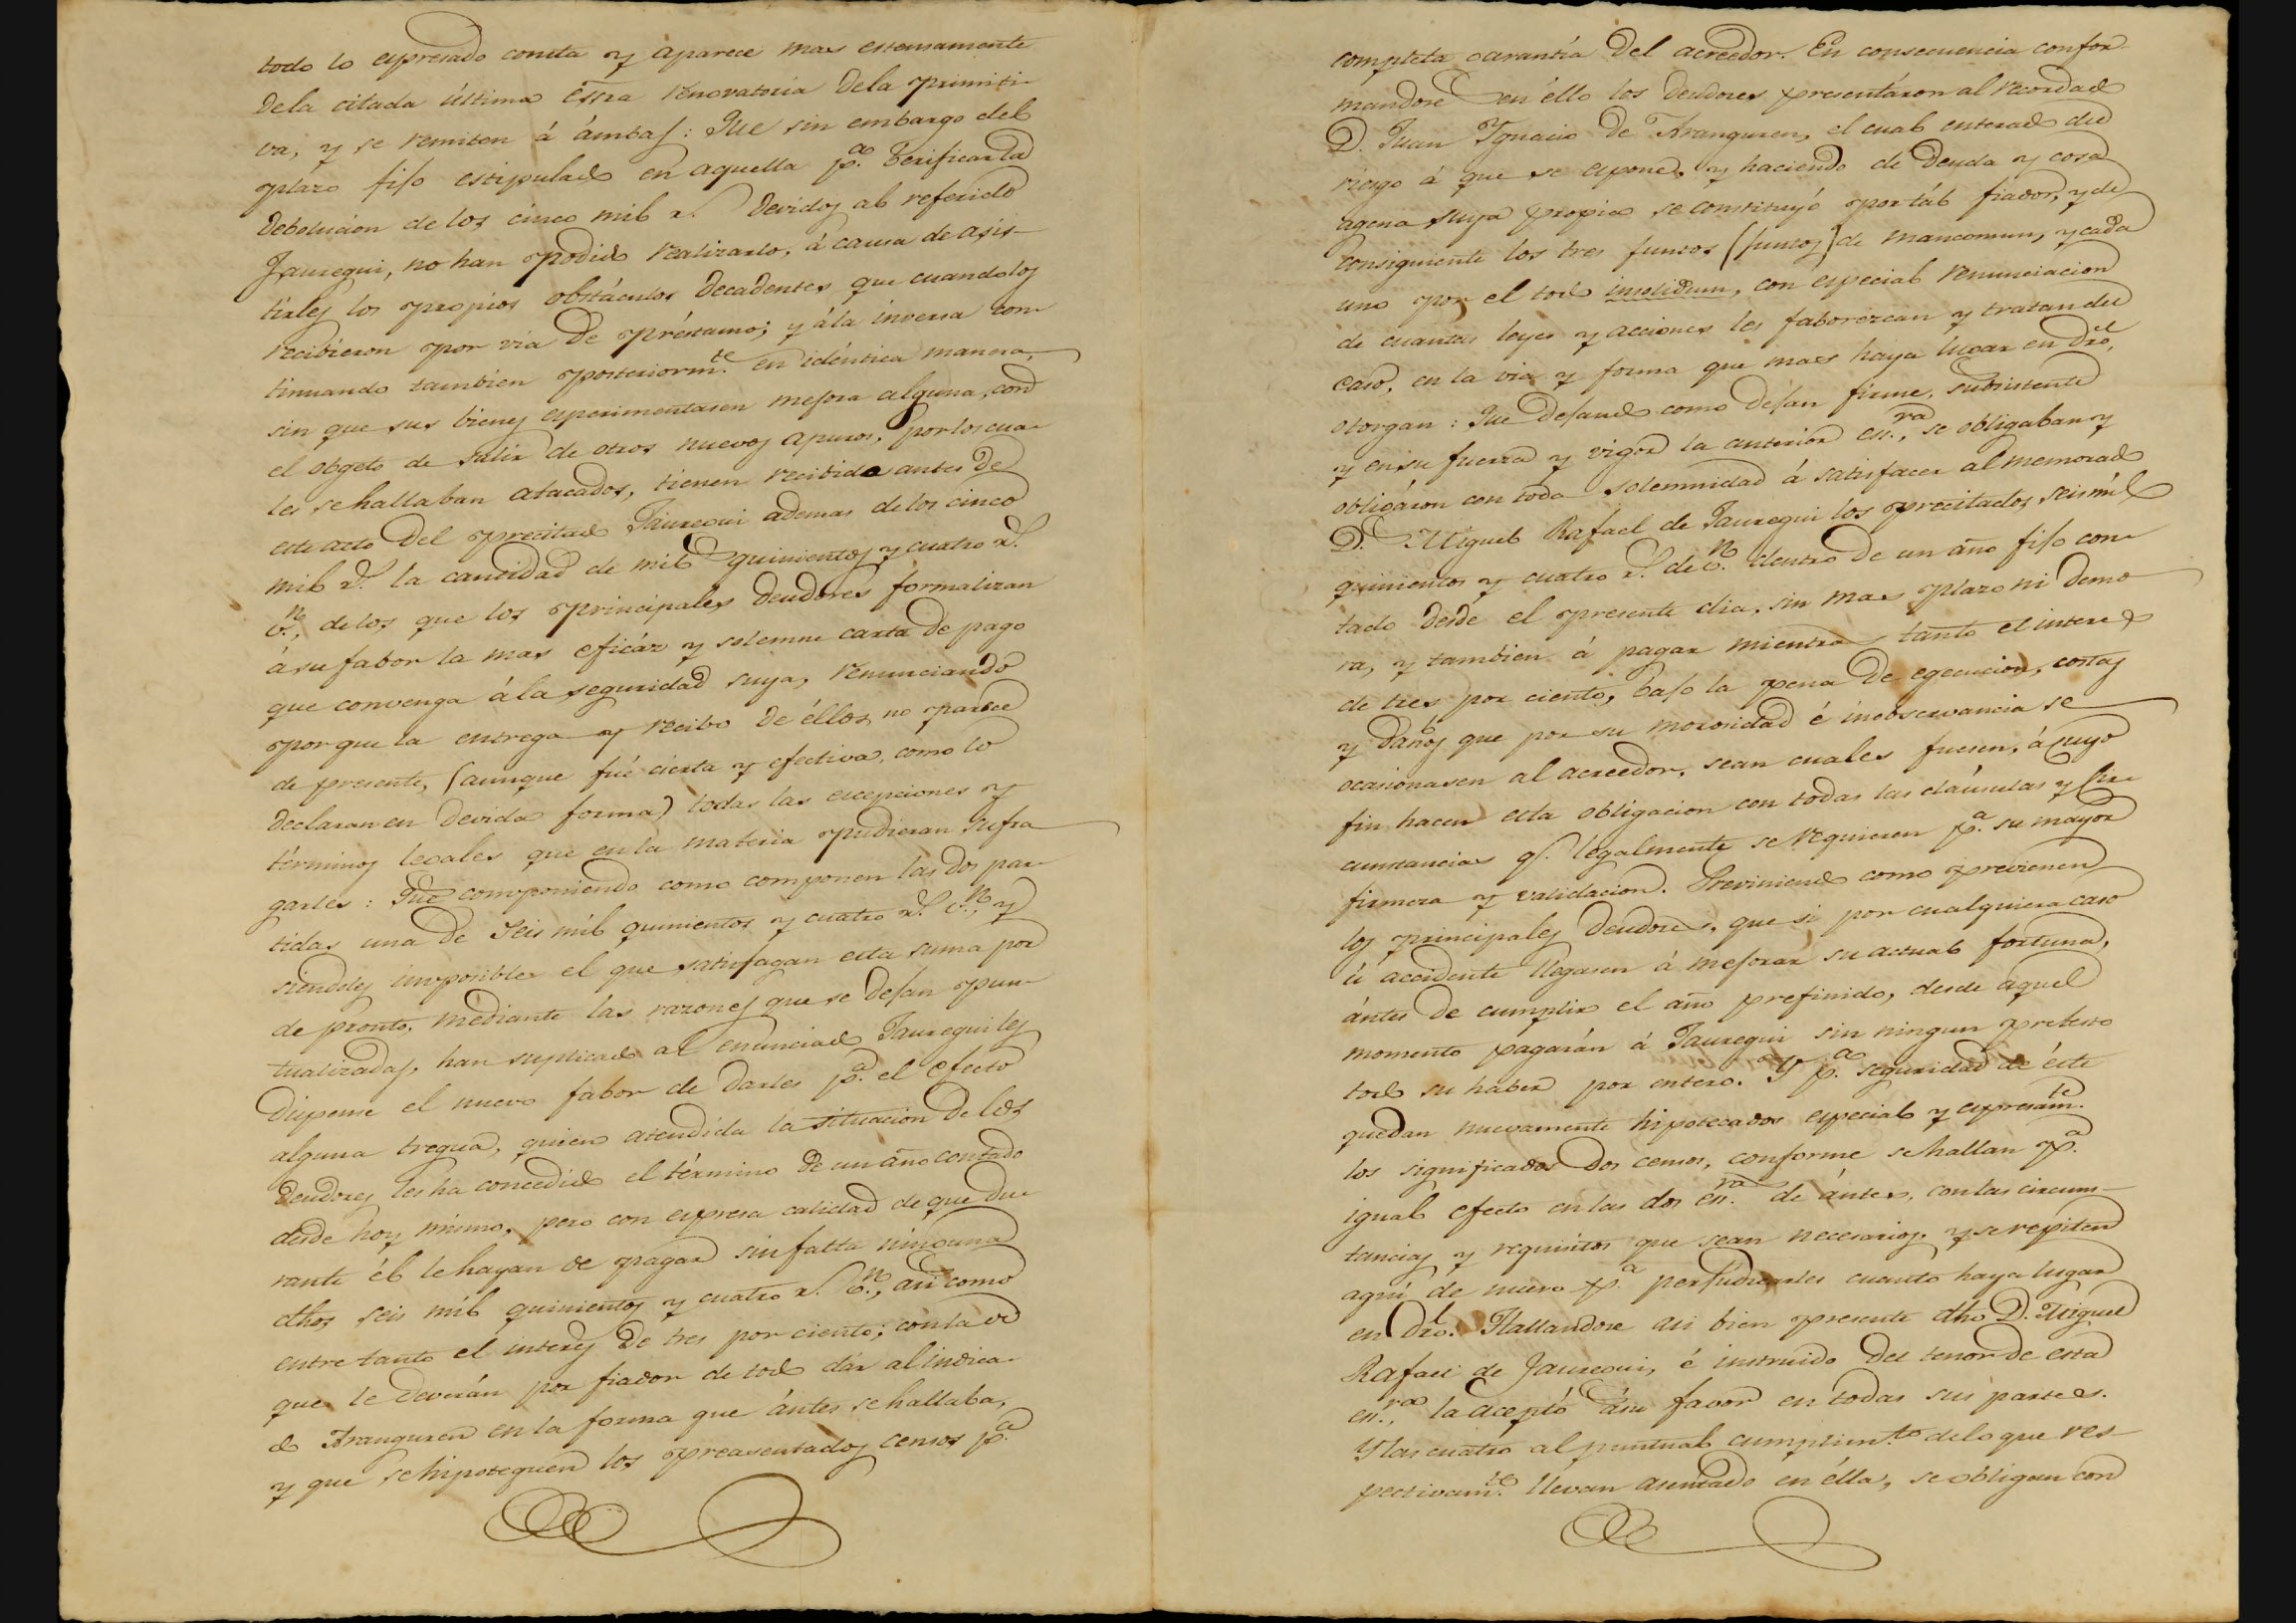 todo lo espresado consta y aparece mas estensamente
de la citada última Essra renovatoria de la primiti-
va, y se remiten á ámbas: Que sin embargo del
plázo fijo estipulado en aquella p.ª verificar la
debolucion de los cinco mil r.s devidos al referido
Jauregui, no han podido realizarlo, á causa de asis-
tirles los propios obstáculos decadentes que cuando los
recibieron por via de préstamo; y á la inversa con-
tinuando tambien posteriorm.te en idéntica manera,
sin que sus bienes esperimentasen mejora alguna, con
el obgeto de salir de otros nuevos apuros, por los cua-
les se hallaban atacados, tienen recibido antes de
este acto del precitado Jauregui ademas de los cinco
mil r.s la cantidad de mil quinientos y cuatro r.s
v.n, de los que los principales deudores formalizan
á su fabor la mas eficáz y solemne carta de pago
que convenga á la seguridad suya, renunciando
por que la entrega y recibo de éllos no parece
de presente, (aunque fué cierta y efectiva, como lo
declaran en devida forma) todas las escepciones y
términos legales que en la materia pudieran sufra-
garles: Que componiendo como componen las dos par-
tidas una de seis mil quinientos y cuatro r.s v.n, y
siendoles imposible el que satisfagan esta suma por
de pronto, mediante las razones que se dejan pun-
tualizadas, han suplicado al enunciado Jauregui les
dispense el nuevo fabor de darles p.ª el efecto
alguna tregua, quien atendida la situacion de los
deudores les ha concedido el término de un año contado
desde hoy mismo, pero con espresa calidad de que du-
rante él le hayan de pagar sin falta ninguna
dhos seis mil quinientos y cuatro r.s v.n, asi como
entre tanto el interes de tres por ciento; con la de
que le deverán por fiador de todo dár al indica-
do Aranguren en la forma que ántes se hallaba,
y que se hipotequen los preasentados censos p.ª
completa garantía del acreedor. En consecuencia confor-
mandose en éllo los deudores presentáron al recordado
D. Juan Ygnacio de Aranguren, el cual enterado del
riesgo á que se espone, y haciendo de deuda y cosa
agena suya propia se constituyó por tál fiador, y de
consiguiente los tres juntos (juntos) de mancomun, y cada
uno por el todo insolidum, con especial renunciacion
de cuantas leyes y acciones les faborezcan y tratan del
caso, en la via y forma que mas haya lugar en dro,
otorgan: Que dejando como dejan firme, subsistente
y en su fuerza y vigor la anterior es.ra, se obligaban y
obligáron con toda solemnidad á satisfacer al memorado
D. Miguel Rafael de Jauregui los precitados seis mil
quinientos y cuatro r.s de v.n dentro de un año fijo con-
tado desde el presente dia, sin mas plazo ni demo-
ra, y tambien á pagar mientras tanto el interes
de tres por ciento, bajo la pena de egecucion, costas
y daños que por su morosidad é inobservancia se
ocasionasen al acreedor, sean cuales fuesen, á cuyo
fin hacen esta obligacion con todas las cláusulas y cir-
cunstancias q.e legalmente se requieren p.ª su mayor
firmeza y validacion. Previniendo como previenen
los principales deudores, que si por cualquiera caso
ú accidente llegasen á mejorar su actual fortuna,
ántes de cumplir el año prefinido, desde aquel
momento pagarán á Jauregui sin ningun pretesto
todo su haber por entero. Y p.ª seguridad de éste
quedan nuevamente hipotecados especial y espresam.te
los significados dos censos, conforme se hallan p.ª
igual efecto en las dos es.ras de ántes, con las circuns-
tancias y requisitos que sean necesarios, y se repiten
aqui de nuevo p.ª perjudicarles cuanto haya lugar
en dro. Hallandose asi bien presente dho D. Miguel
Rafael de Jauregui, é instruido del tenor de esta
es.ra, la aceptó á su favor en todas sus partes.
Y los cuatro al puntual cumplim.to de lo que res-
pectivam.te llevan asentado en élla, se obligan con